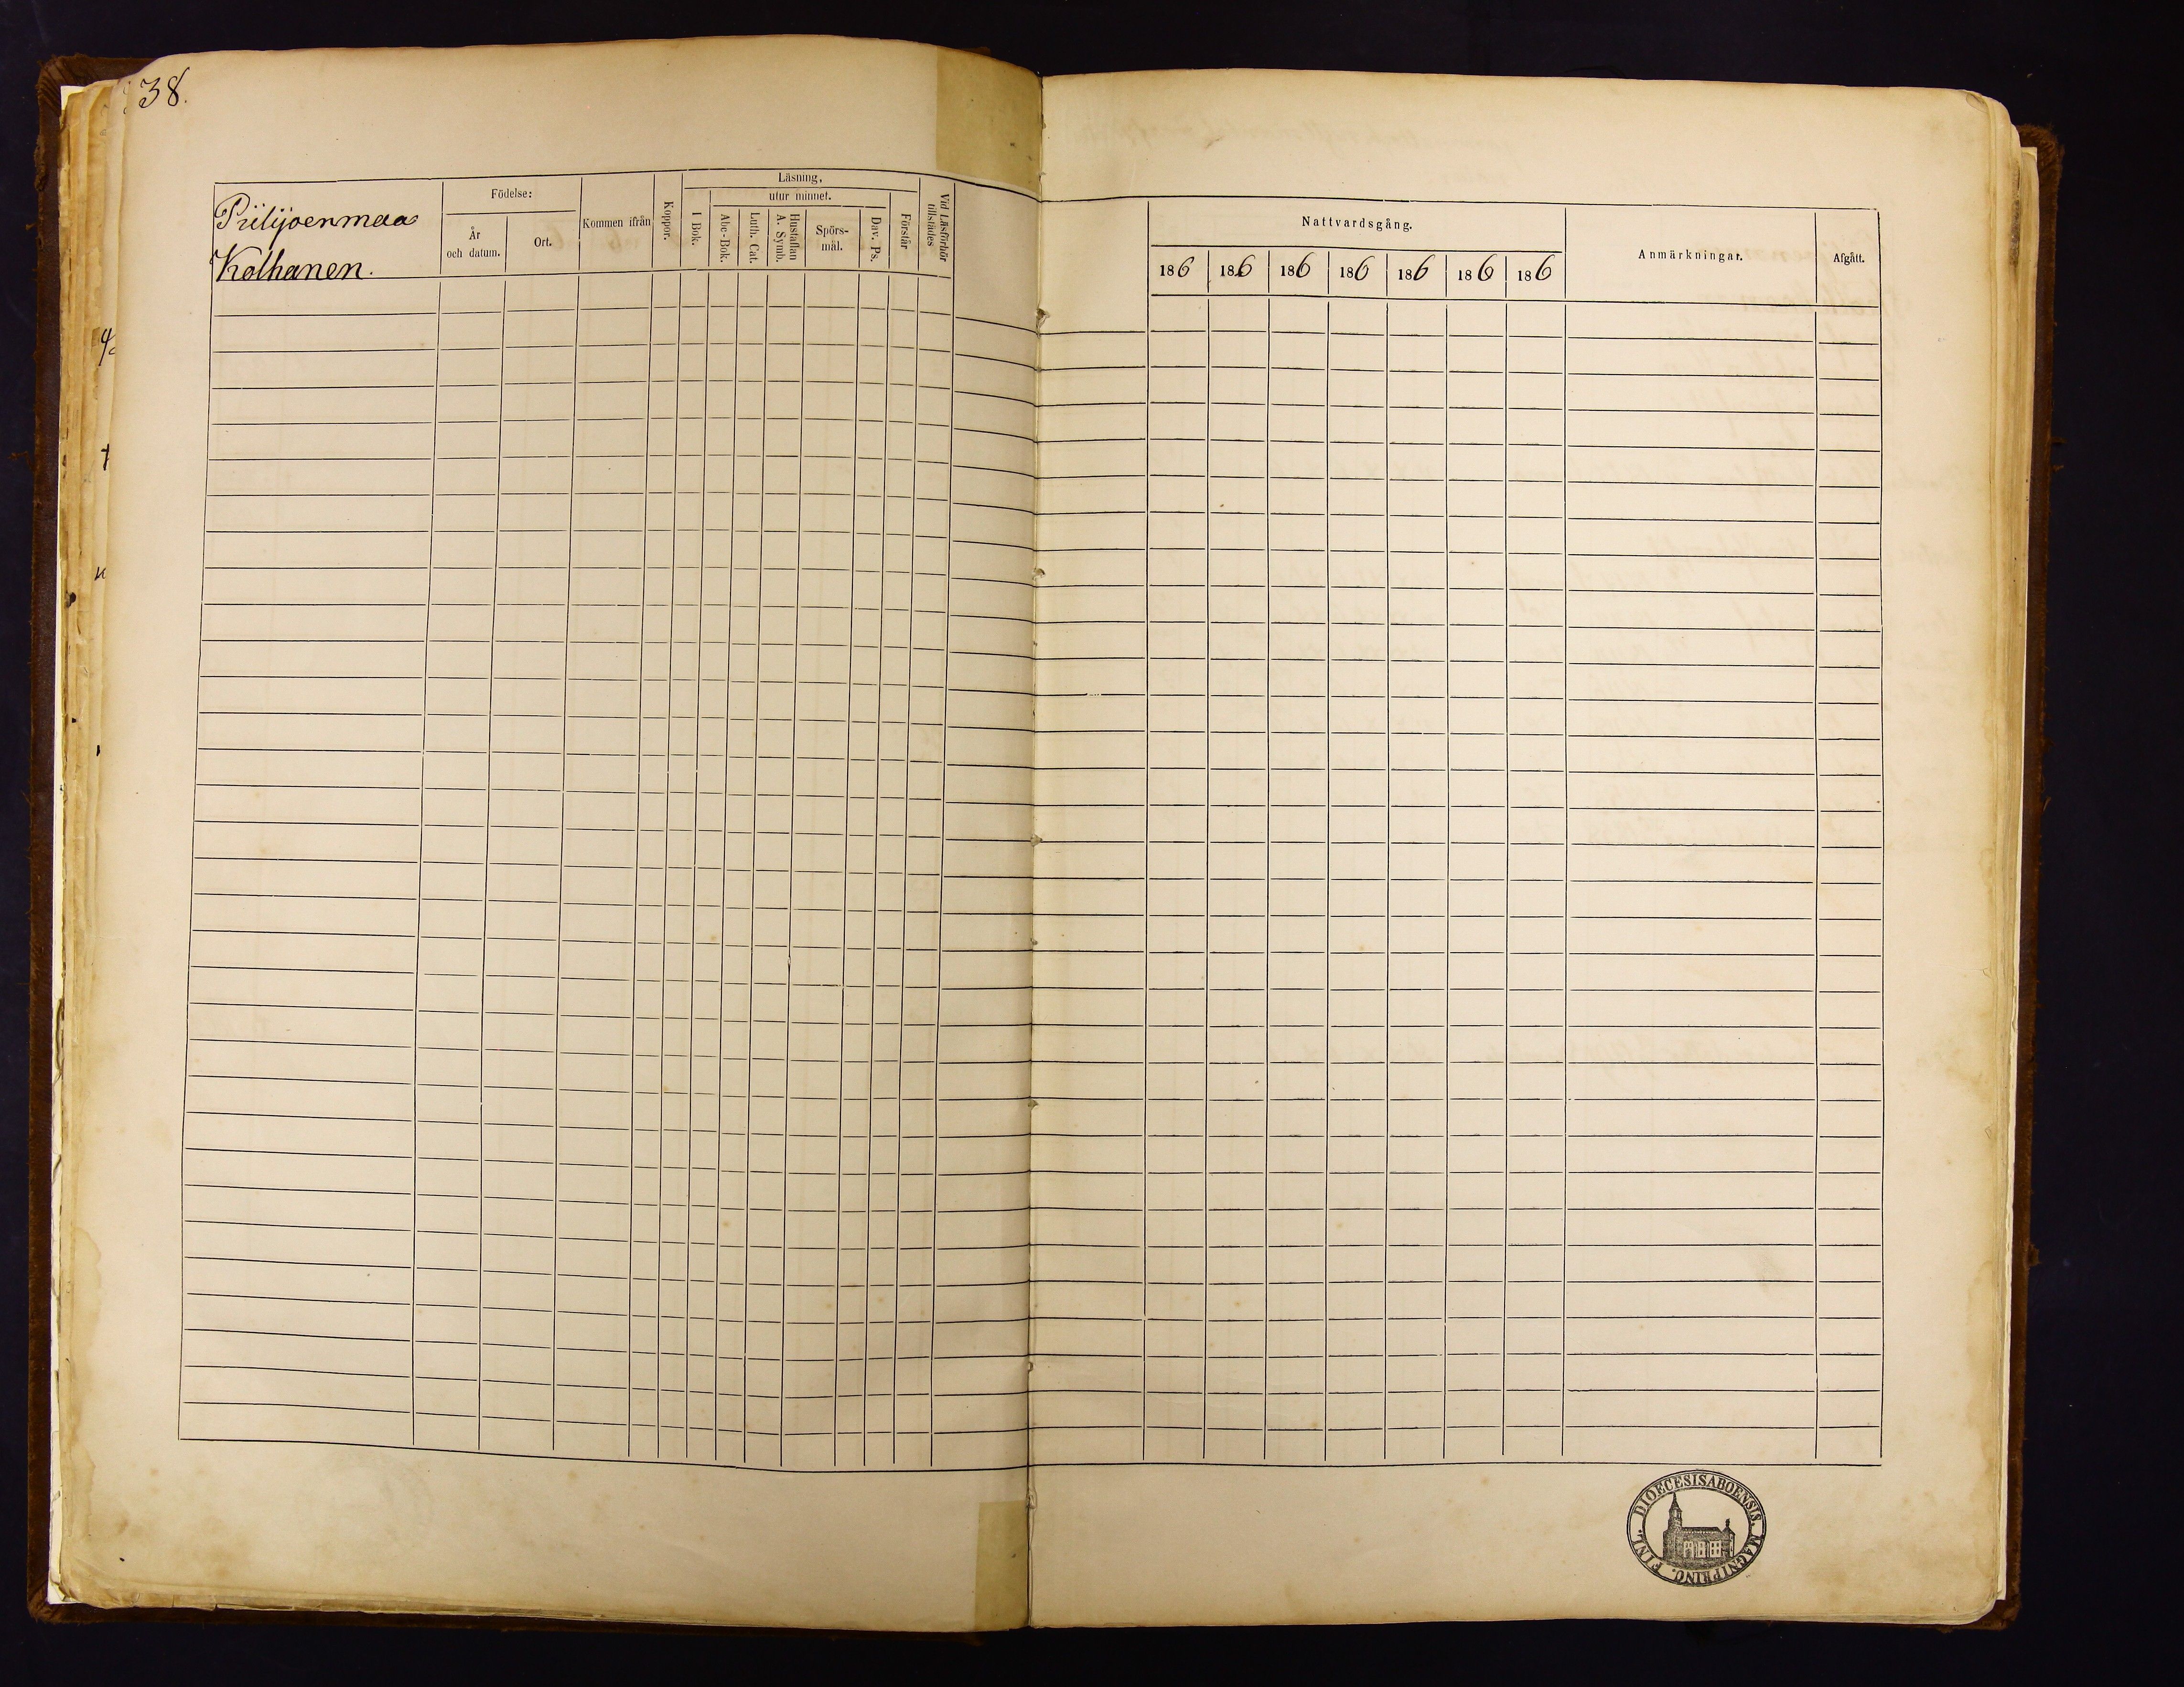 38.
Piilijoenmaa
Kolhanen.
Födelse:
År och datum.
Ort.
Kommen ifrån
Koppor.
Läsning,
I Bok.
utur minnet.
Abc-Bok.
Luth. Cat.
Hustaflan A. Symb.
Spörs-mål.
Dav. Ps.
Förstår
Vid Läsförhör tillstädes
Nattvardsgång.
186 186 186 186 186 186 186
Anmärkningar.
Afgått.
DIOECESIS ABOENSIS. MAGNI PRINC. FINL.